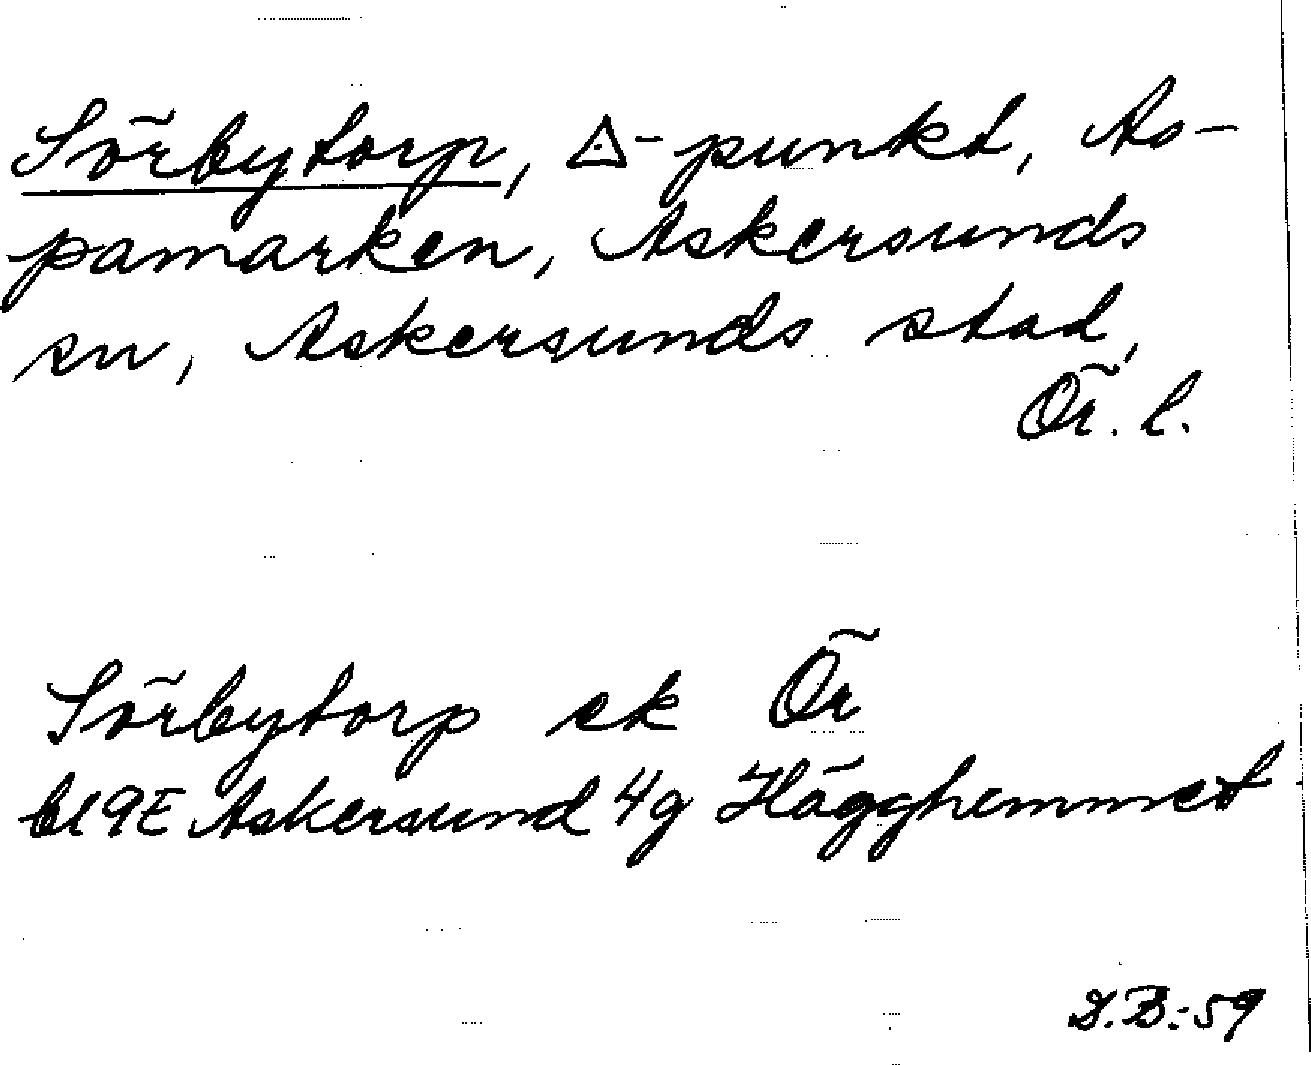 Sörbytorp, △-punkt, As-
pamarken, Askersunds
sn, Askersunds stad,
Ör. l.
Sörbytorp ek Ör
bl 9E Askersund 4g Hägghemmet
D.B.-59